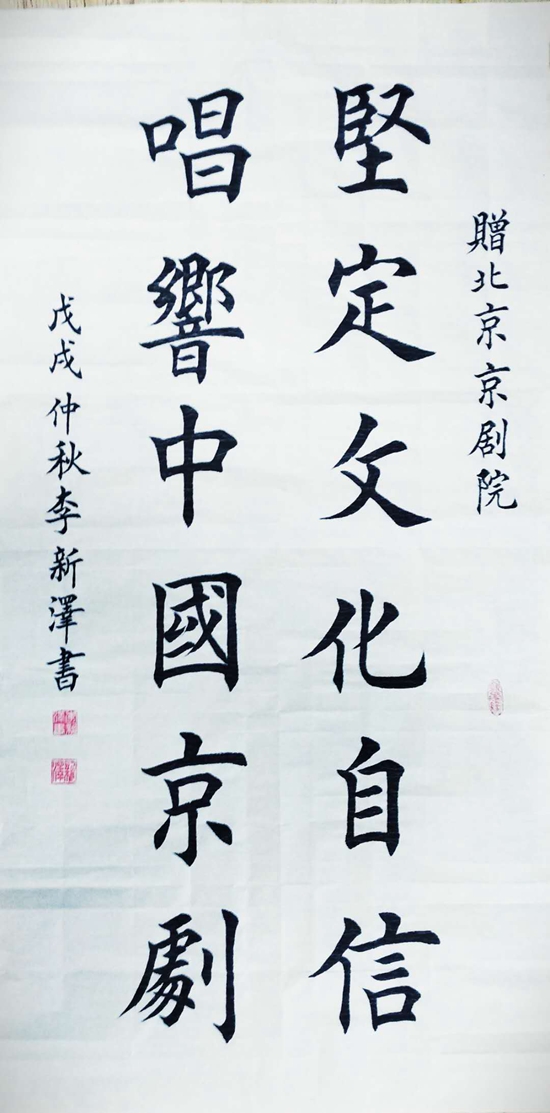 贈北京京剧院
堅定文化自信
唱響中國京劇
戊戌仲秋李新澤書